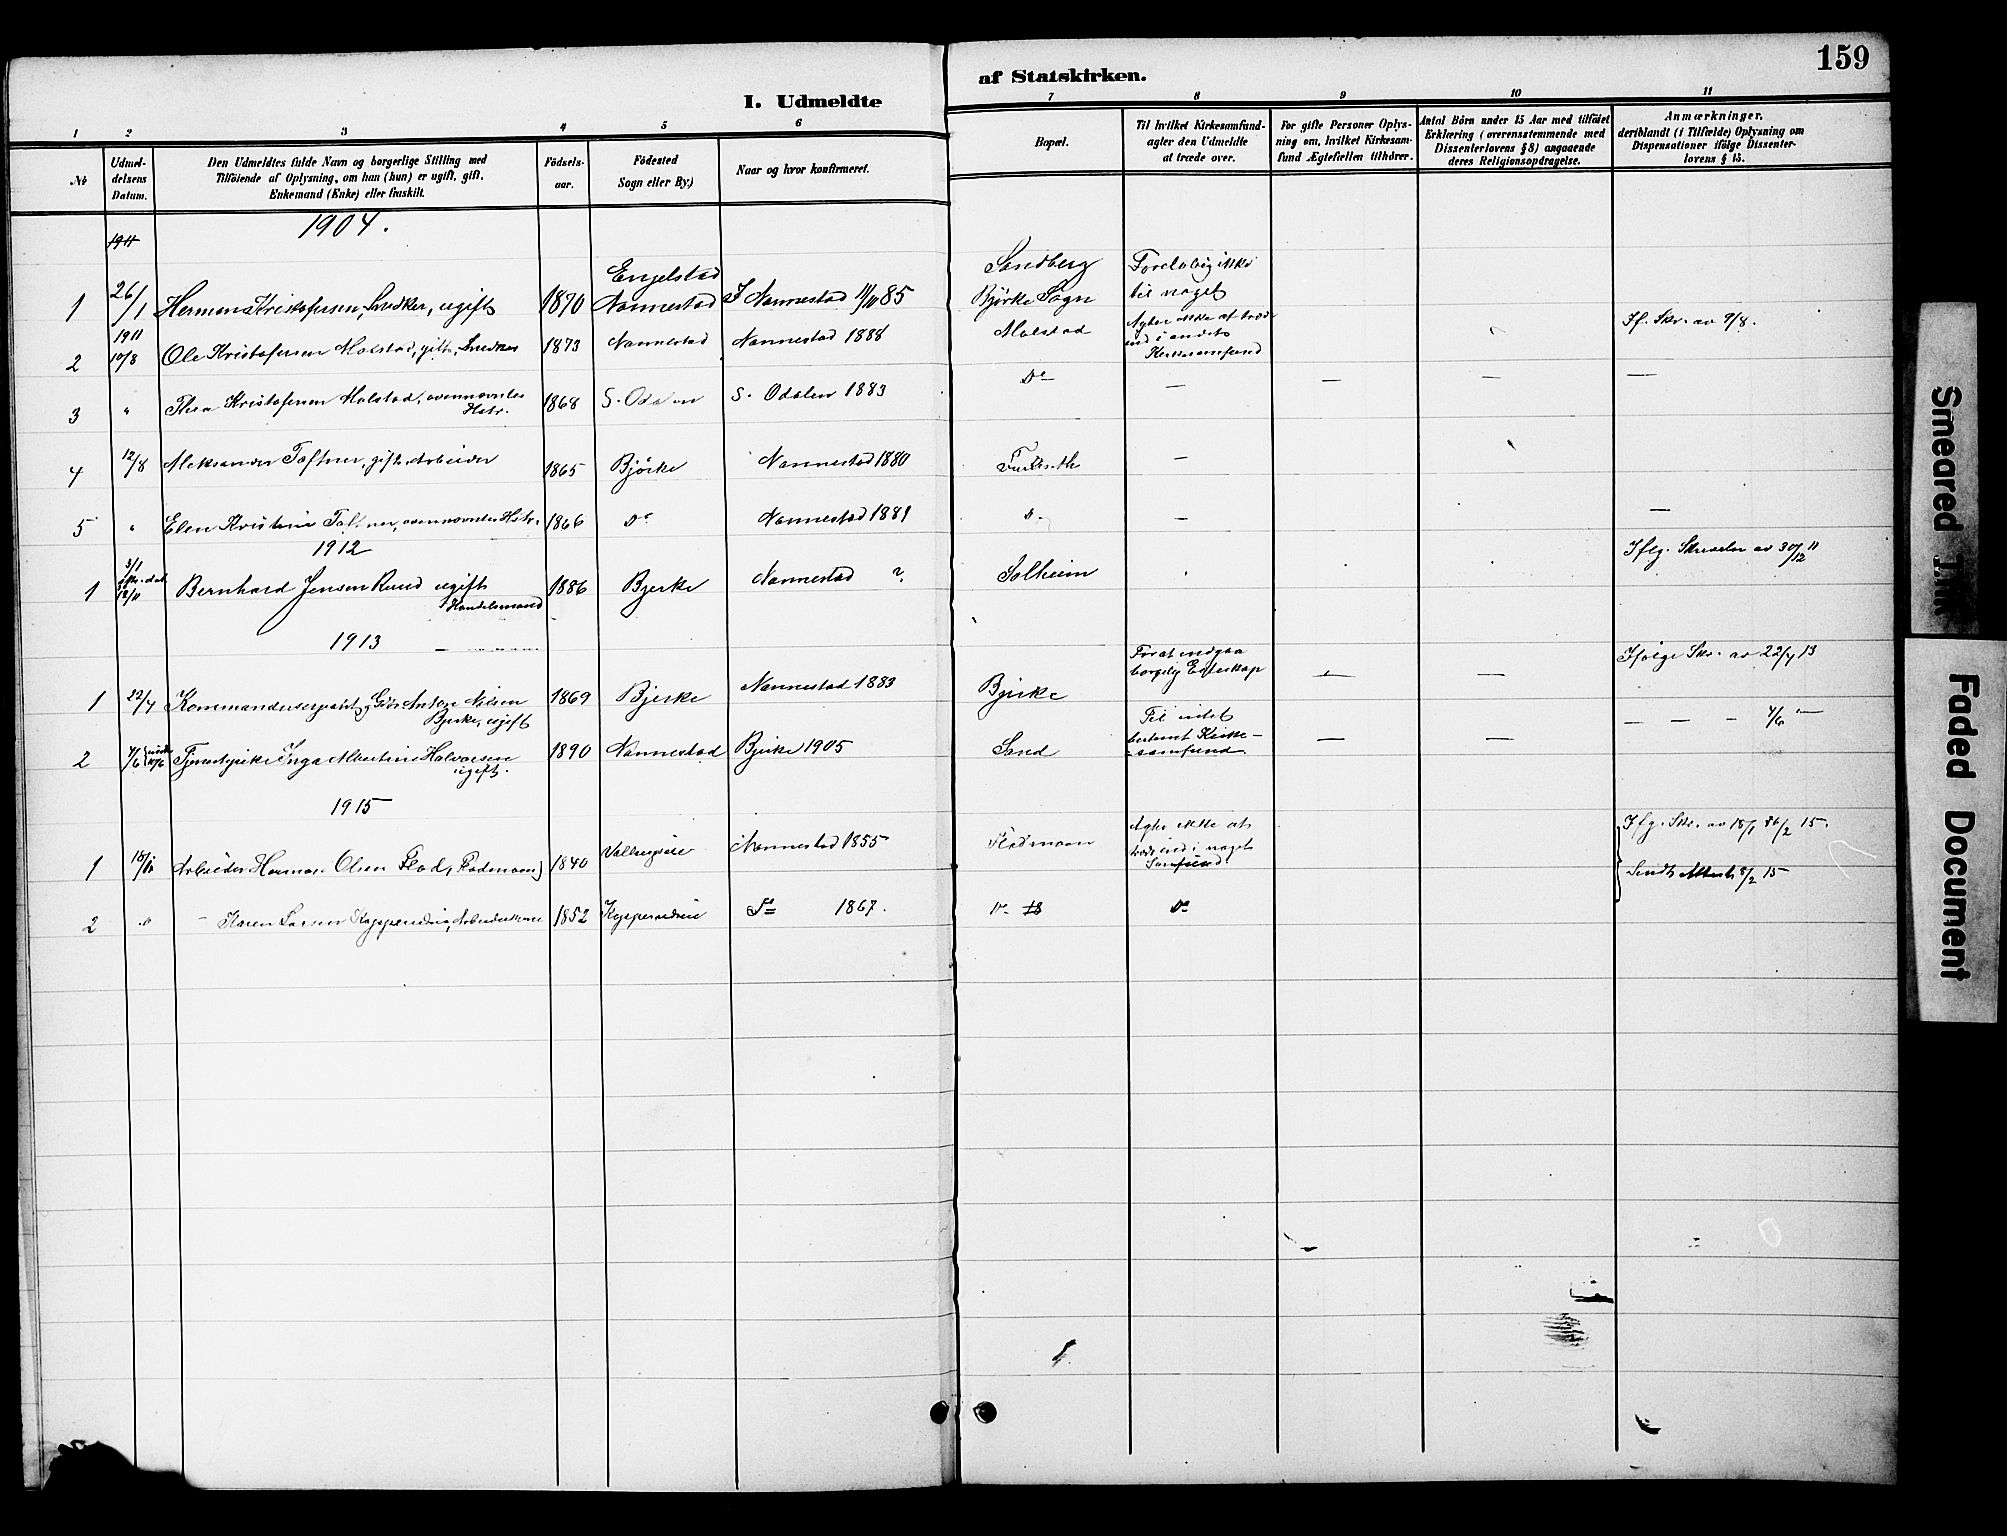 159
I. Udmeldte af Statskirken.
1 2 3 4 5 6 7 8 9 10 11
№
Udmel-
delsens
Datum.
Den Udmeldtes fulde Navn og borgerlige Stilling med
Tilföiende af Oplysning, om han (hun) er ugift, gift,
Enkemand (Enke) eller fraskilt.
Födsels-
aar.
Födested
Sogn eller By.)
Naar og hvor konfirmeret.
Bopæl.
Til hvilket Kirkesamfund-
agter den Udmeldte
at træde over.
For gifte Personer Oplys-
ning om, hvilket Kirkesam-
fund Ægtefællen tilhörer.
Antal Börn under 15 Aar med tilföiet
Erklæring (overensstemmende med
Dissenterlovens § 8) angaaende
deres Religionsopdragelse.
Anmærkninger,
deriblandt (i Tilfælde) Oplysning om
Dispensationer ifölge Dissenter-
lovens § 15.
1904.
1911
1 26/1 Herman Kristofersen, Snedker, ugift 1870 Engelstad
Nannestad I Nannestad 11/11 85 Sandberg
Bjørke Sogn Foreløbig ikke
til noget
1911
2 10/8 Ole Kristofersen Molstad, gift, Snedker 1873 Nannestad Nannestad 1888 Molstad Agter ikke at træde
ind i andet
Kirkesamfund If. Skr. av 9/8.
3 " Thea Kristofersen Molstad, ovennævntes
Hstr. 1868 S. Odalen S. Odalen 1883 Do — — — —
4 12/8 Aleksander Toftner, gift, Arbeider 1865 Bjørke Nannestad 1880 —
5 " Elen Kristine Toftner, ovennævntes Hstr. 1866 Do Nannestad 1881 D. — —
1912
1 3/1 12/11 Bernhard Jensen Ruud ugift
Handelsmand 1886 Bjerke Nannestad ? Solheim Iflg. Skrivelse av 30/12 11
1913
1 22/4 Kommandersergeant, Anton Nilsen
Bjerke, ugift 1869 Bjerke Nannestad 1883 Bjerke For at indgaa
borgelig Egteskap — — Ifølge Skr. av 22/4 13
2 7/6 10/6 Tjenestepike Inga Albertine Halvorsen
ugift. 1890 Nannestad Bjerke 1905 Sand Til intet
bestemt Kirke-
samfund. — — — — — 7/6 "—
1915
1 18/1 Arbeider Herman Olsen Flod, Flodmoen) 1840 Nannestad 1855 Flodmoen Agter ikke at
træde ind i noget
Samfund. Ifg. Skr. av 18/1 26/2 15.
Sendt Attest 8/2 15
2 " Karen Larsen 1852 Do 1867. Do Do
Smeared Ink
Faded Document